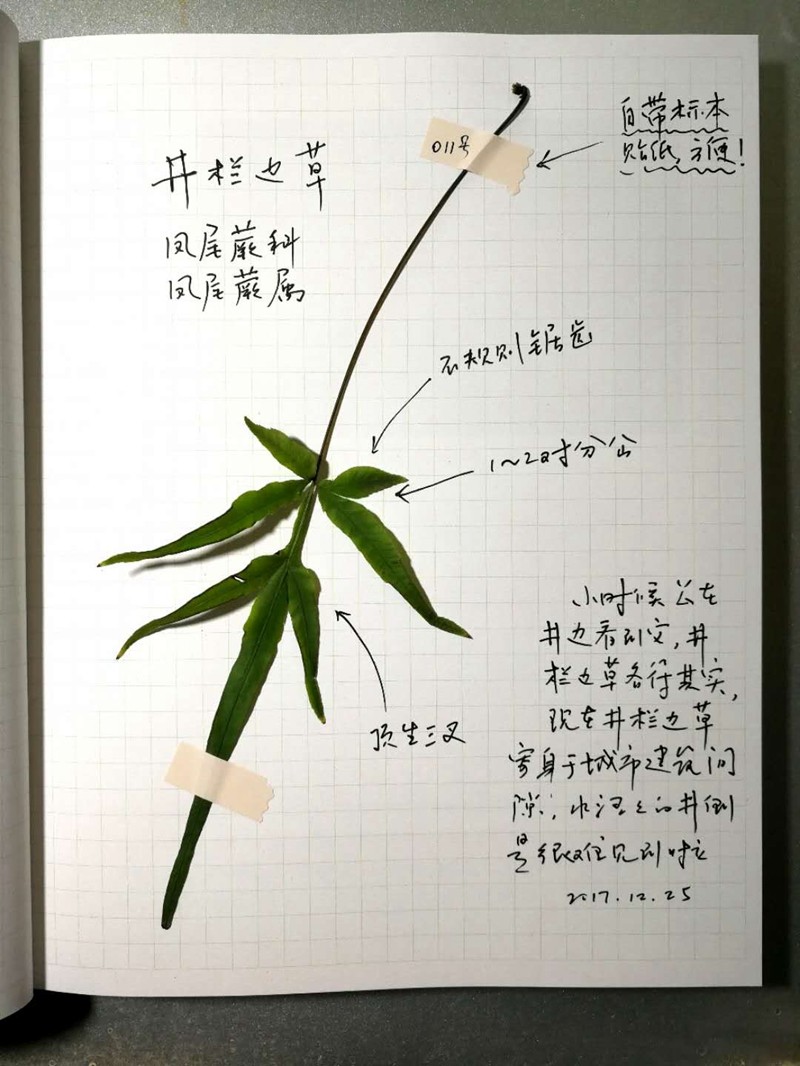 井栏边草
凤尾蕨科
凤尾蕨属
011号
自带标本
贴纸,方便!
不规则锯齿
1~2对分
顶生三叉
小时候会在
井边看到它,井
栏边草名符其实,
现在井栏边草
寄身于城市建筑间
隙,水泥的井倒
是很难见到了
2017.12.25